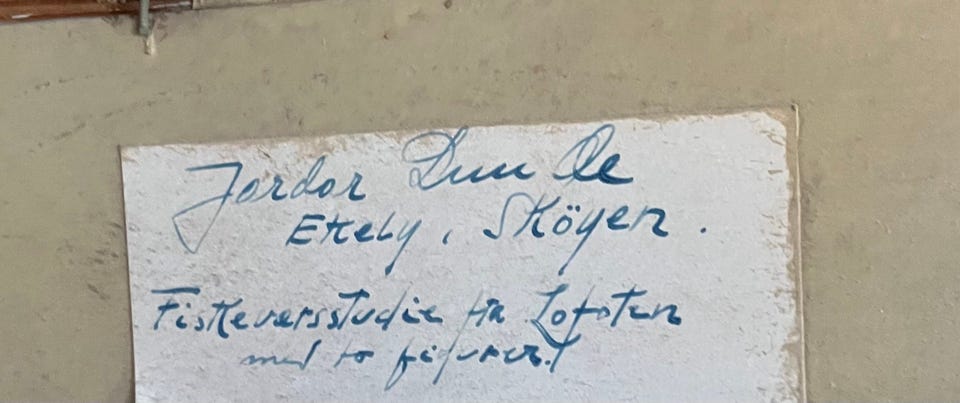 Jardar Lunde
Ekely, Sköyen.
Fiskeværsstudie fra Lofoten
med to figurer.